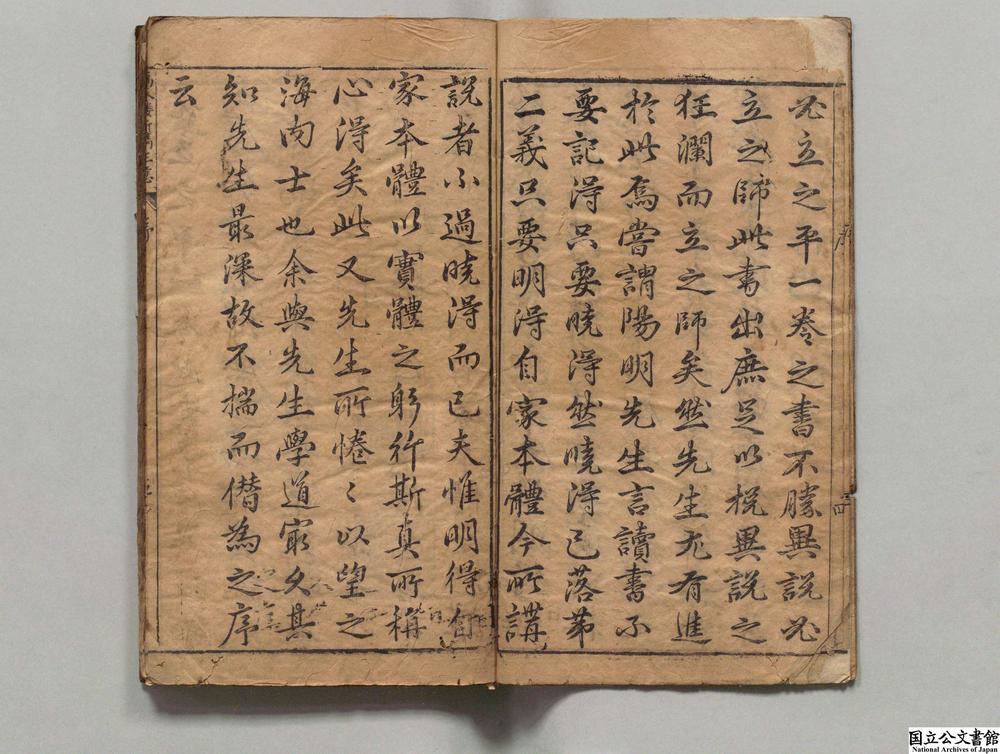 必立之平一卷之書不勝異說必
立之師此書出庶足以挽異說之
狂瀾而立之師矣然先生尤有進
於此焉嘗謂陽明先生言讀書不
要記得只要曉得然曉得已落第
二義只要明得自家本體今所講
說者不過曉得而已夫惟明得自
家本體以實體之躬行斯真所稱
心得矣此又先生所惓〻以望之
海內士也余與先生學道最久其
知先生最深故不揣而僭為之序
云
序
四
国立公文書館
National Archives of Japan